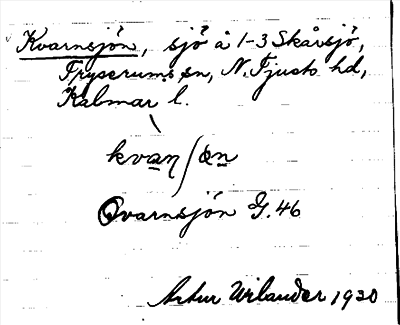 Kvarnsjön, sjö å 1-3 Skårsjö,
Fryserums sn, N. Tjusts hd,
Kalmar l.
kvàn/ʃøn
Qvarnsjön G. 46
Artur Wilander 1920